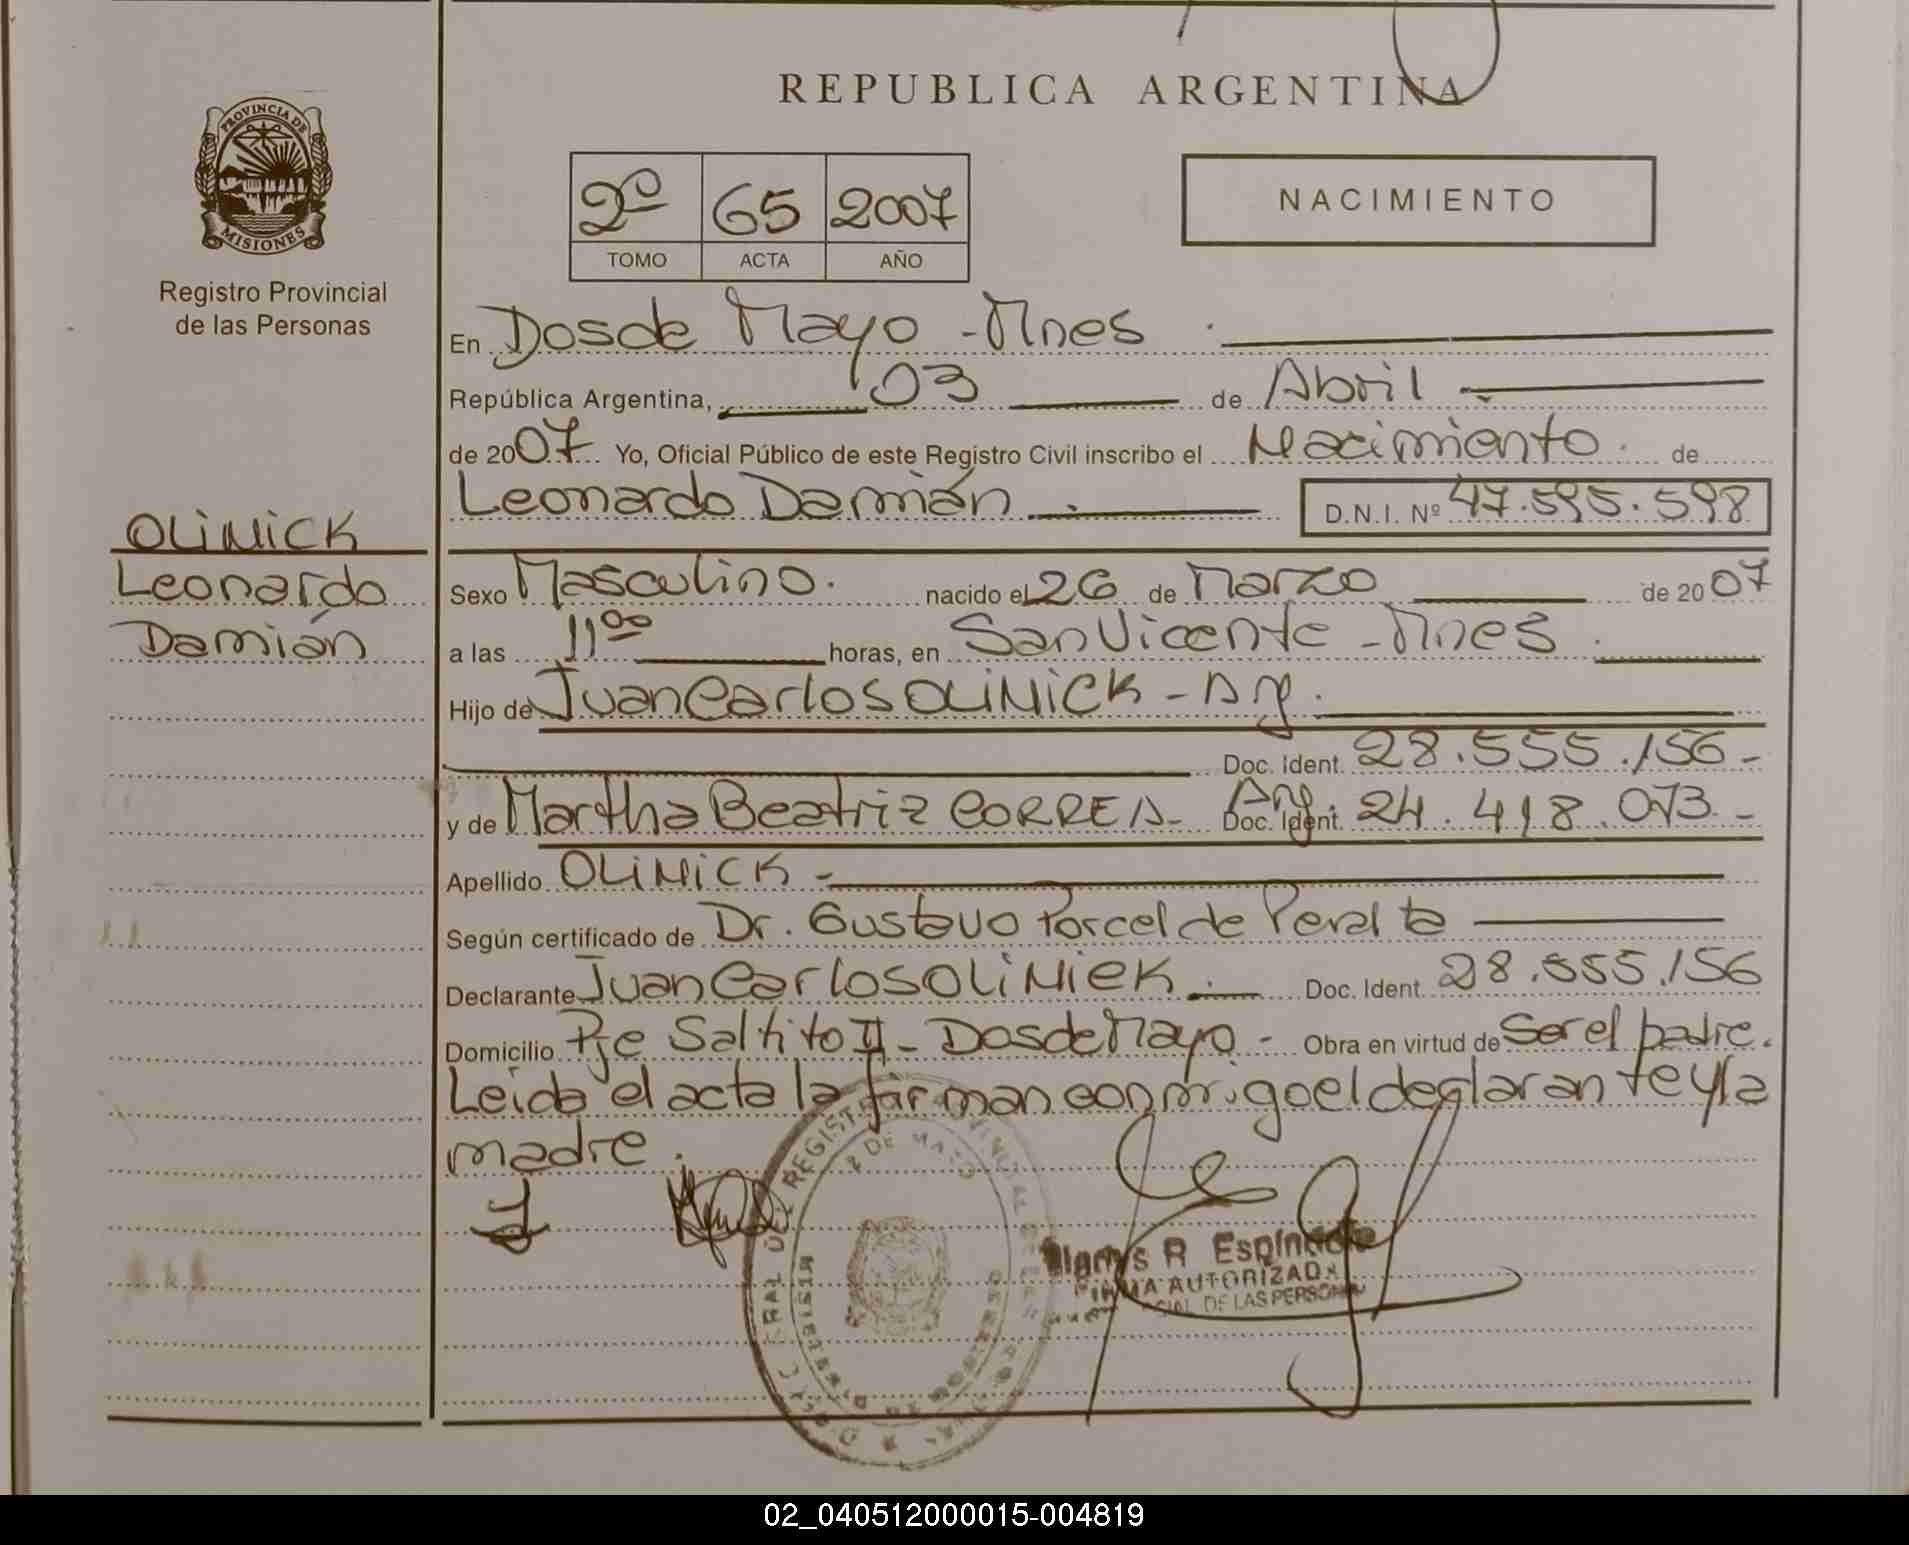 REPUBLICA ARGENTINA
PROVINCIA DE
MISIONES
Registro Provincial
de las Personas
2º 65 2007
TOMO ACTA AÑO
NACIMIENTO
En Dos de Mayo - Mnes
República Argentina, 03 de Abril
de 2007 Yo, Oficial Público de este Registro Civil inscribo el Nacimiento de
Leonardo Damián D.N.I. Nº 47.595.598
OLiNiCK
Leonardo
Damián
Sexo Masculino. nacido el 26 de Marzo de 2007
a las 11⁰⁰ horas, en San Vicente - Mnes
Hijo de Juan Carlos OLiNiCK - Arg.
Doc. Ident. 28.555.156-
y de Martha Beatriz CORREA- Arg. Doc. Ident. 24.418.073-
Apellido OLiNiCK -
Según certificado de Dr. Gustavo Porcel de Peralta
Declarante Juan Carlos OLiNiCK. Doc. Ident. 28.555.156
Domicilio Pje Saltito II - Dos de Mayo - Obra en virtud de Ser el padre.
Leída el acta la firman conmigo el declarante y la
madre.
2 DE MAYO
R Espíndola
FIRMA AUTORIZADA
DE LAS PERSONAS
02_040512000015-004819